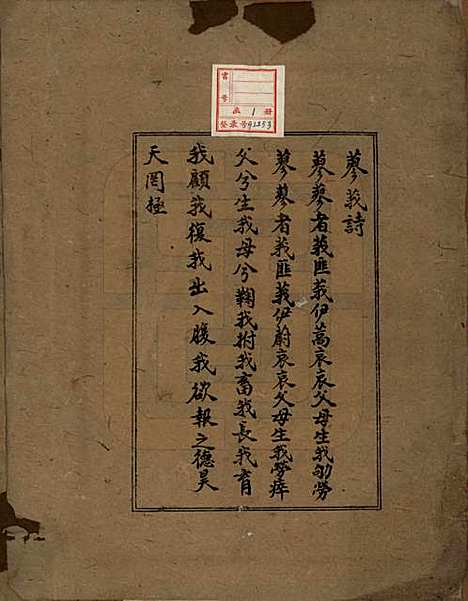 書号
函 1 册
登录号 A2253
蓼莪詩
蓼蓼者莪匪莪伊蒿哀哀父母生我劬勞
蓼蓼者莪匪莪伊蔚哀哀父母生我勞瘁
父兮生我母兮鞠我拊我畜我長我育
我顧我復我出入腹我欲報之德昊
天罔極